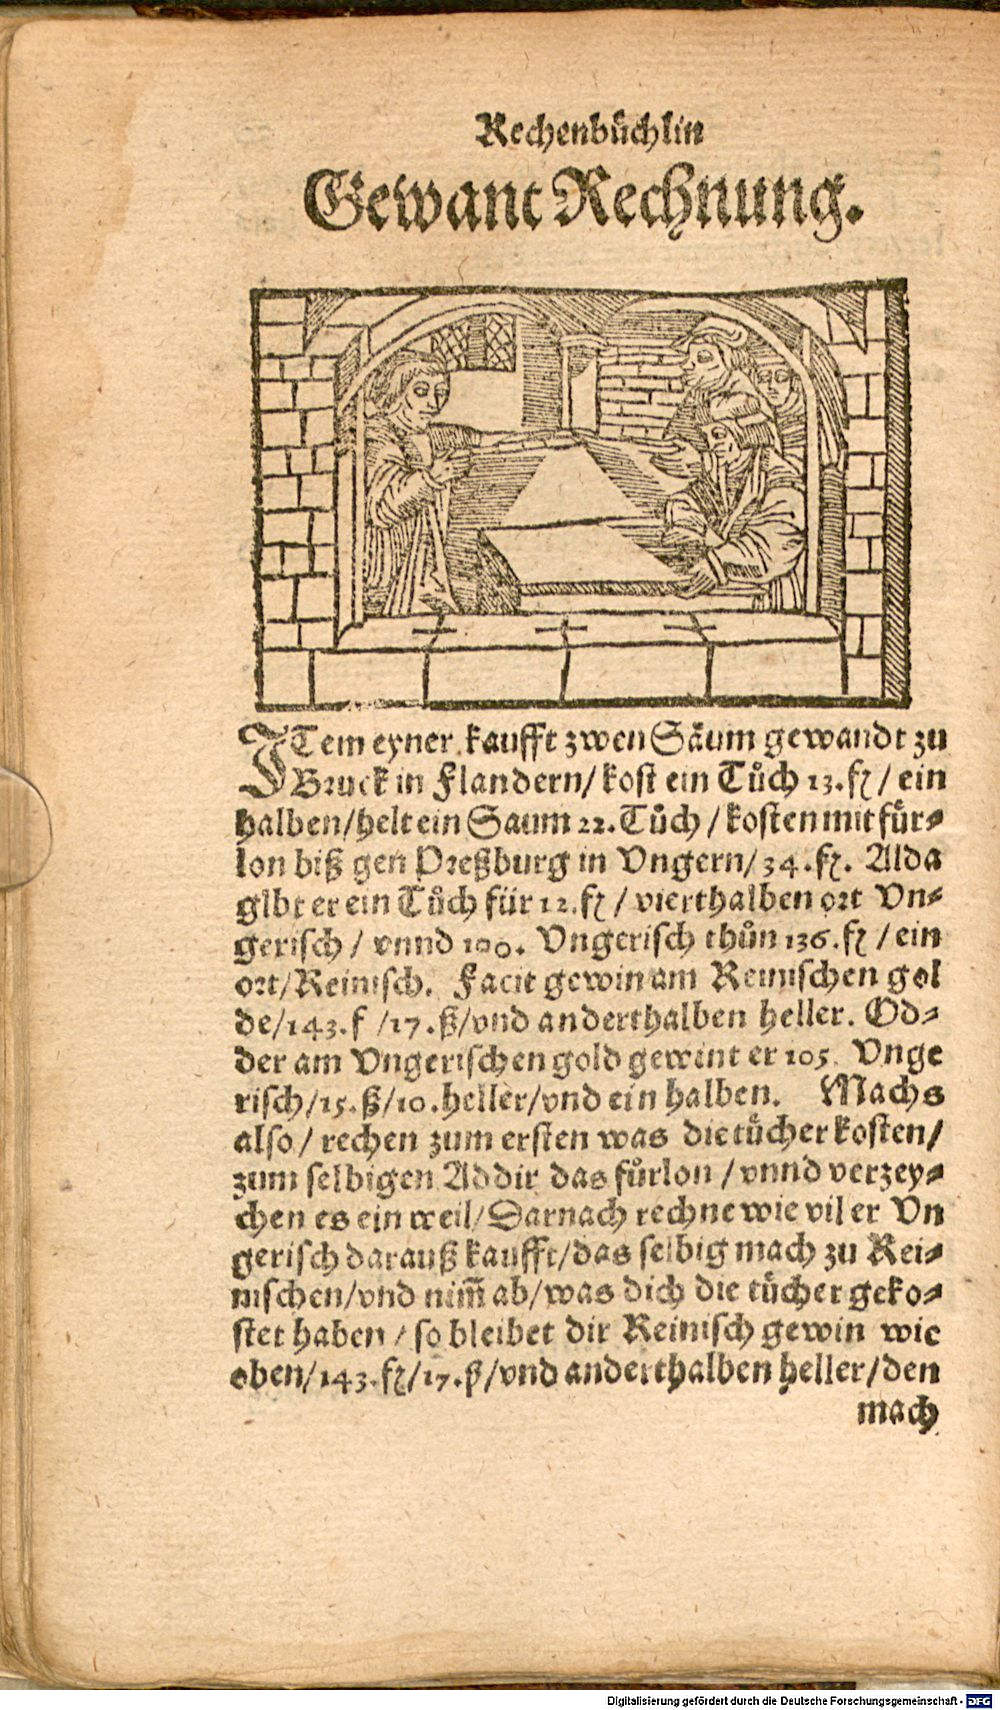 Rechenbüchlin
Gewant Rechnung.
ITem eyner kaufft zwen Säum gewandt zu
Bruck in Flandern/ kost ein Tůch 13. fl/ ein
halben/ helt ein Saum 22. Tůch / kosten mit fůr⸗
lon biß gen Preßburg in Vngern/ 34. fl. Alda
gibt er ein Tůch für 12. fl / vierthalben ort Vn⸗
gerisch / vnnd 100. Vngerisch thůn 136. fl / ein
ort/ Reinisch. Facit gewin am Reinischen gol
de/ 143. f /17. ß/ vnd anderthalben heller. Od⸗
der am Vngerischen gold gewint er 105. Vnge
risch/15. ß/10. heller/ vnd ein halben. Machs
also/ rechen zum ersten was die tücher kosten/
zum selbigen Addir das fůrlon / vnnd verzey⸗
chen es ein weil/ Darnach rechne wie vil er Vn
gerisch darauß kaufft/ das selbig mach zu Rei⸗
nischen/ vnd nim̃ ab/ was dich die tücher geko⸗
stet haben / so bleibet dir Reinisch gewin wie
oben/ 143. fl/17. ß/ vnd anderthalben heller/ den
mach
Digitalisierung gefördert durch die Deutsche Forschungsgemeinschaft - DFG